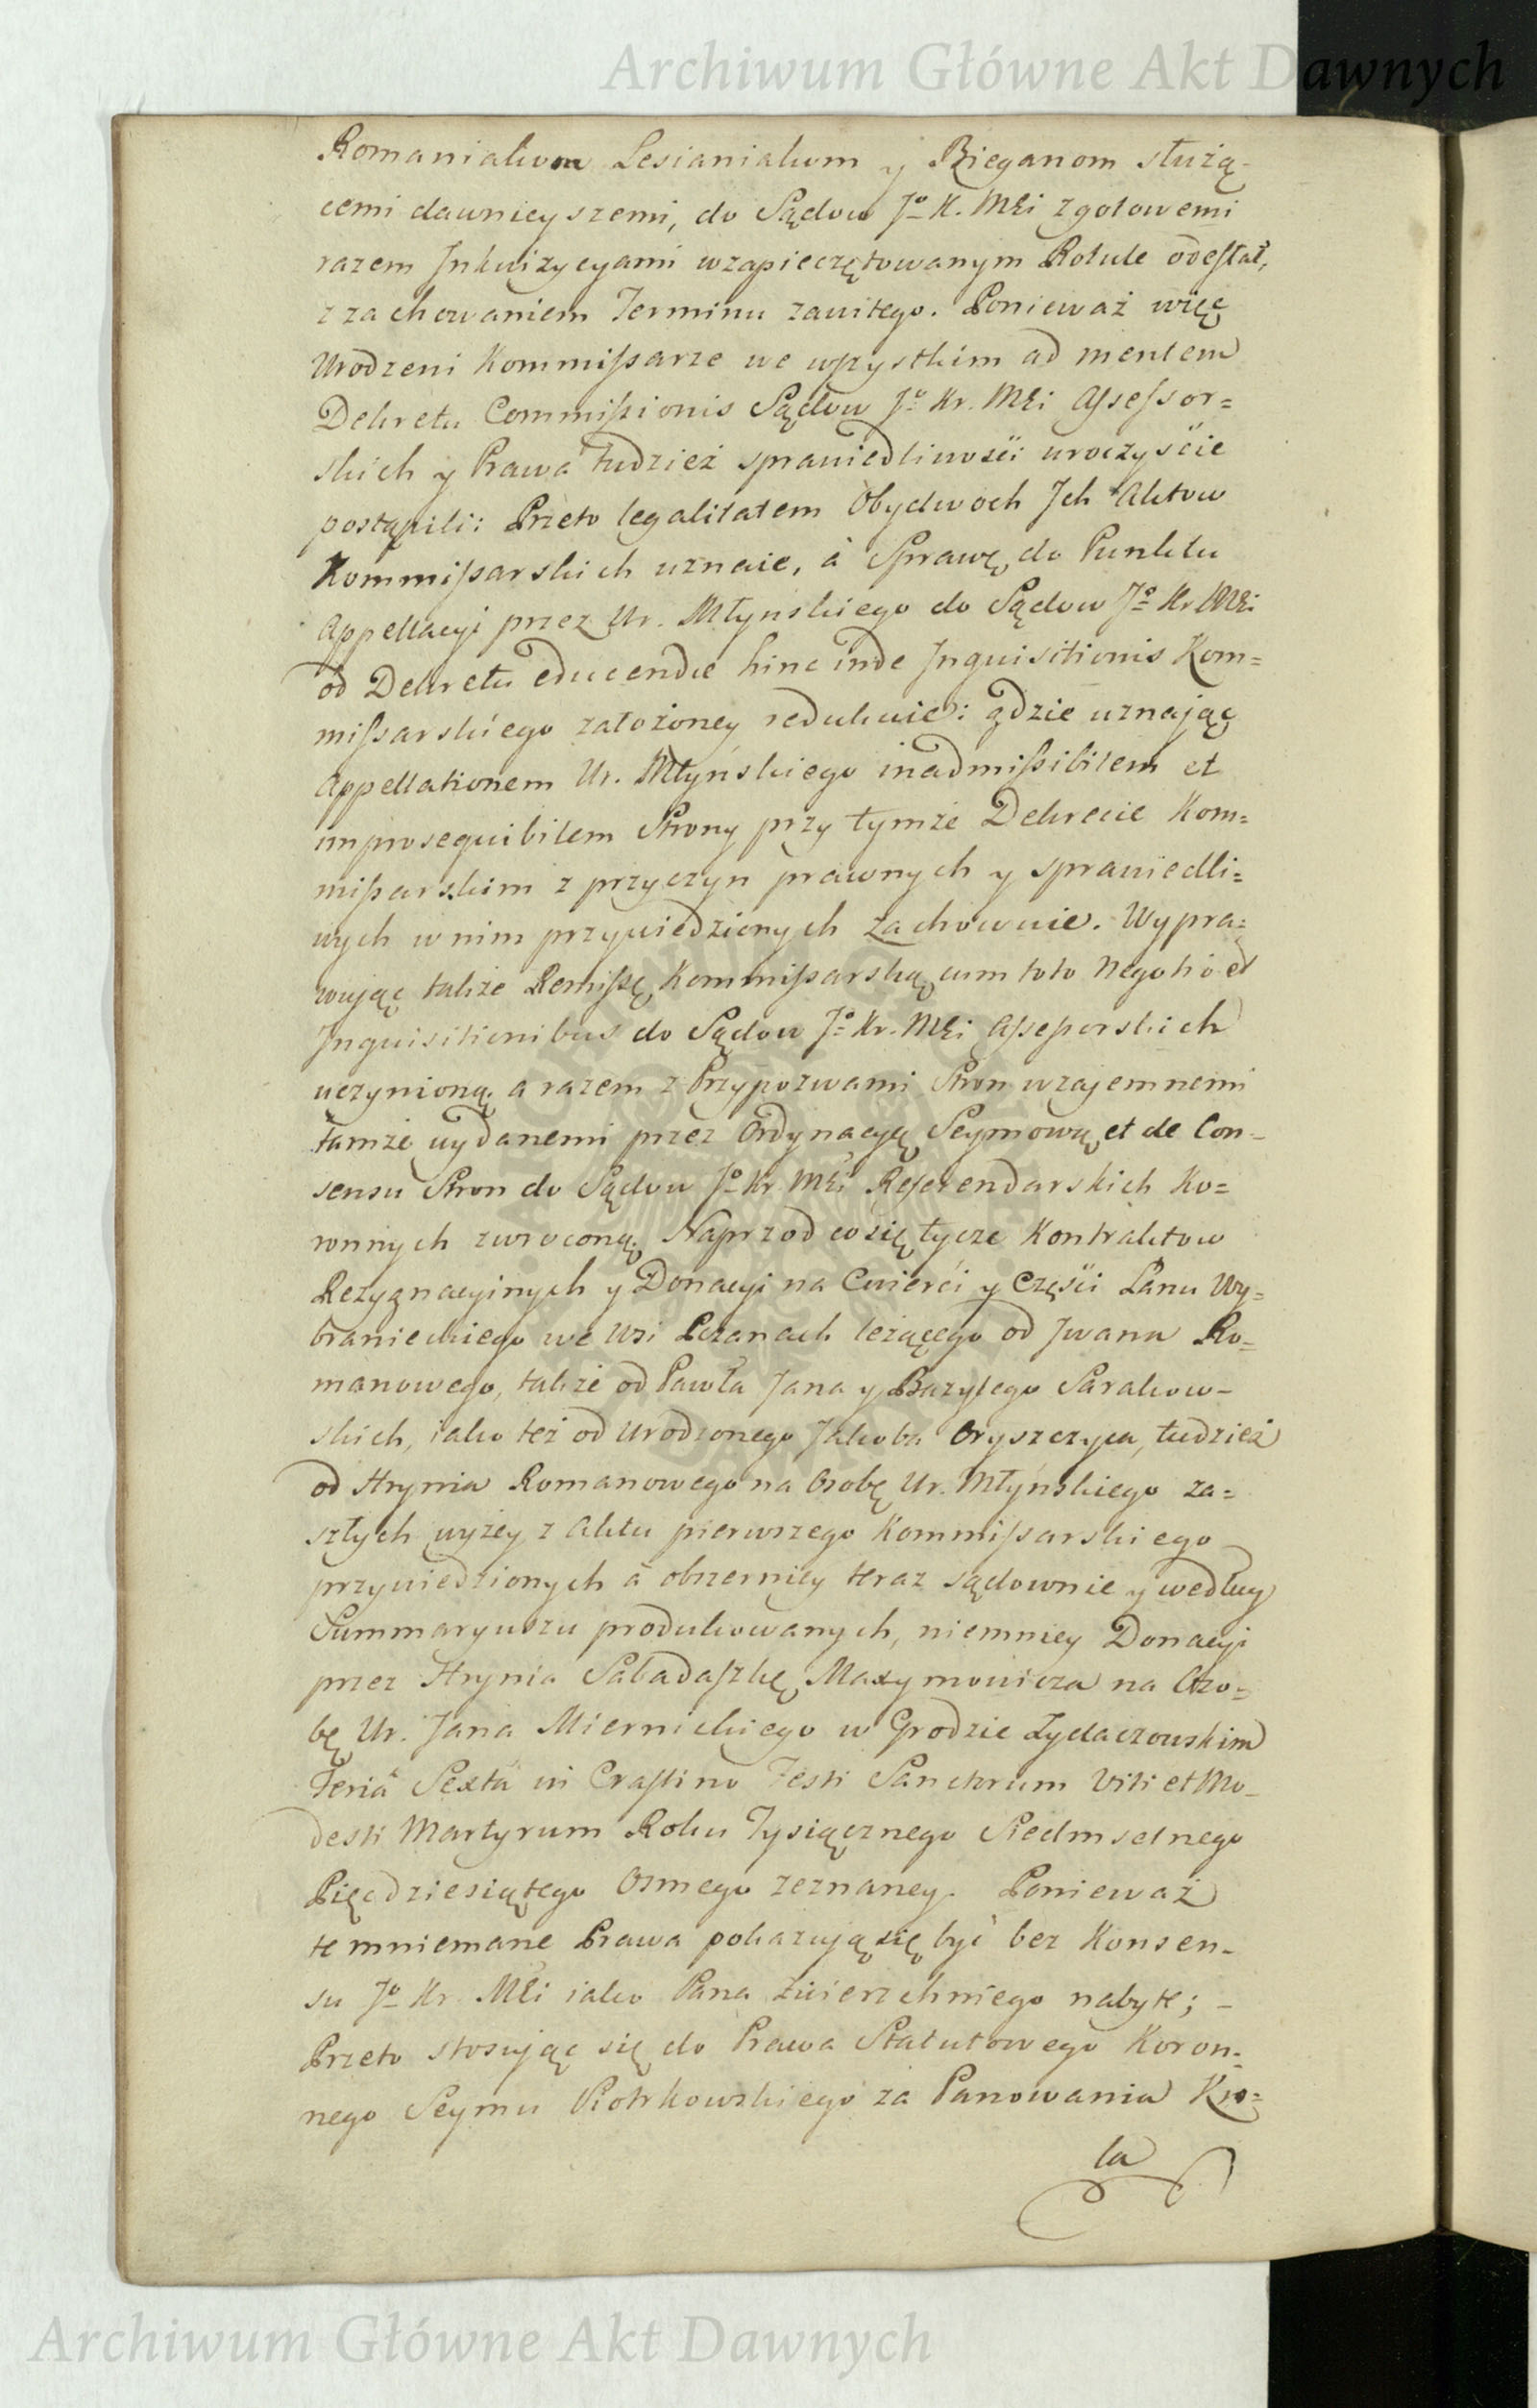 Archiwum Główne Akt Dawnych
Romaniakom Lesianiakom y Bieganom służą-
cemi dawnieyszemi, do Sądow Jº K. Mći zgotowemi
razem Jnkwizycyami wzapieczętowanym Rotule odesłał,
z zachowaniem Terminu zawitego. Ponieważ więc
Urodzeni Kommissarze we wszystkim ad mentem
Dekretu Commissionis Sądow Jº Kr. Mći Assessor=
skich y Prawa tudzież sprawiedliwości uroczyście
postąpili: Przeto legalitatem Obydwoch Jch Aktow
Kommissarskich uznaie, à Sprawę do Punktu
Appellacyi przez Ur. Młynskiego do Sądow Jº Kr Mći
od Dekretu educendæ hinc inde Jnquisitionis Kom=
missarskiego założoney redukuie: gdzie uznając
Appellationem Ur. Młyńskiego inadmissibilem et
improsequibilem Strony przy tymże Dekrecie Kom=
missarskim z przyczyn prawnych y sprawiedli=
wych w nim przywiedzionych zachowuie. Wypra=
wując także Remissę Kommissarską cum toto Negotio et
Jnquisitionibus do Sądow Jº Kr. Mći Assessorskich
uczynioną, a razem z Przypozwami Stron wzajemnemi
tamże wydanemi przez Ordynacyę Seymową et de Con-
sensu Stron do Sądow Jº Kr Mći Referendarskich Ko=
ronnych zwroconą. Naprzod co się tycze Kontraktow
Rezygnacyinych y Donacyi na Cwierci y Części Łanu Wy=
branieckiego we Wsi Pczanach leżącego od Jwana Ro=
manowego, także od Pawła Jana y Bazylego Sarakow-
skich, iako też od Urodzonego Jakoba Oryszczyca, tudzież
od Hrynia Romanowego na Osobę Ur. Młyńskiego za=
szłych wyżey z Aktu pierwszego Kommissarskiego
przywiedzionych à obszerniey teraz sądownie y według
Summaryuszu produkowanych, niemniey Donacyi
przez Hrynia Sabadaszkę Maxymowicza na Oso=
bę Ur. Jana Miernickiego w Grodzie Żydaczowskim
Feriâ Sextâ in Crastino Festi Sanctorum Viti et Mo-
desti Martyrum Roku Tysiącznego Siedmsetnego
Pięcdziesiątego Osmego zeznaney. Ponieważ
te mniemane Prawa pokazują się być bez Konsen-
su Jº Kr Mći iako Pana zwierzchniego nabyte; -
Przeto stosując się do Prawa Statutowego Koron=
nego Seymu Piotrkowskiego za Panowania Kro=
la
Archiwum Główne Akt Dawnych